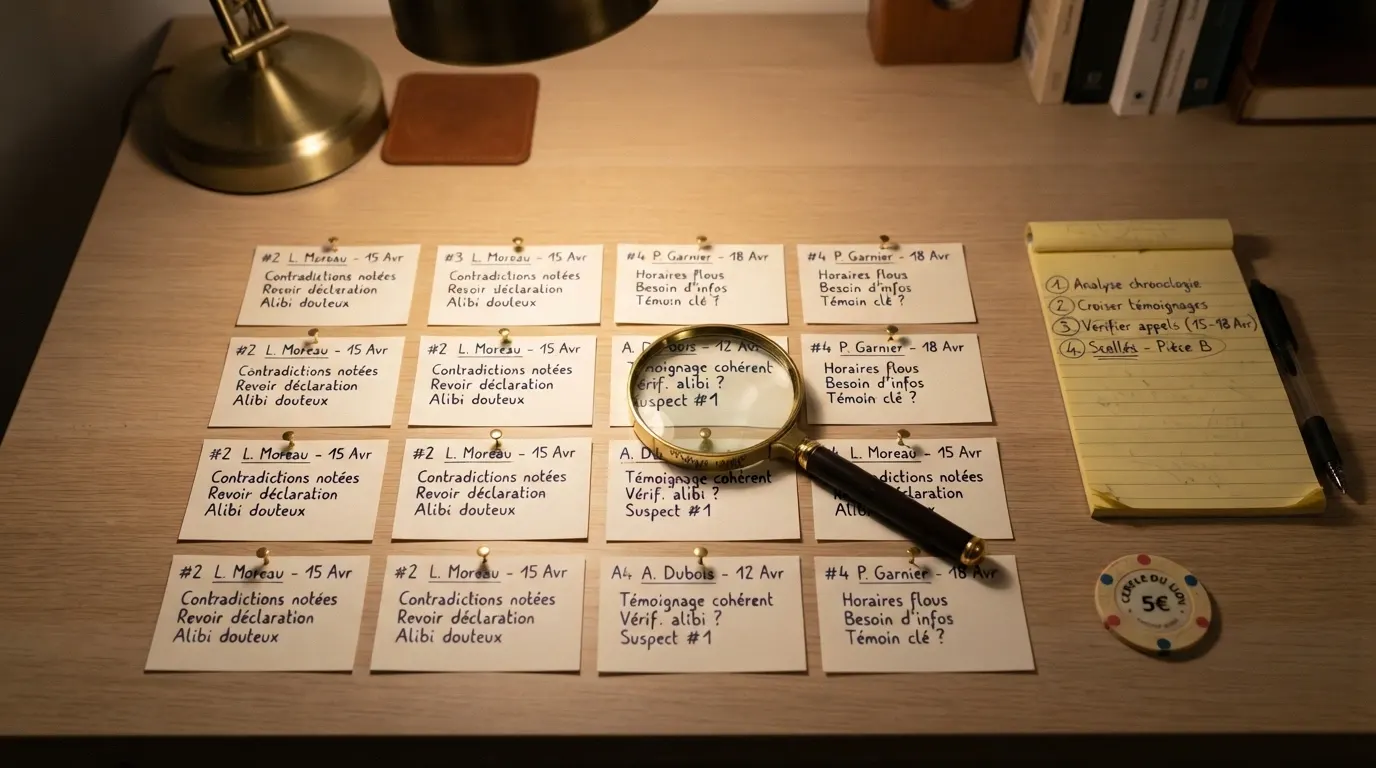 #2 L. Moreau - 15 Avr
Contradictions notées
Revoir déclaration
Alibi douteux
#3 L. Moreau - 15 Avr
Contradictions notées
Revoir déclaration
Alibi douteux
#4 P. Garnier - 18 Avr
Horaires flous
Besoin d'infos
Témoin clé ?
#4 P. Garnier - 18 Avr
Horaires flous
Besoin d'infos
Témoin clé ?
#2 L. Moreau - 15 Avr
Contradictions notées
Revoir déclaration
Alibi douteux
#2 L. Moreau - 15 Avr
Contradictions notées
Revoir déclaration
Alibi douteux
A. 12 Avr
cohérent
Vérif. alibi ?
Suspect #1
#4 P. Garnier - 18 Avr
Horaires flous
Besoin d'infos
Témoin clé ?
#2 L. Moreau - 15 Avr
Contradictions notées
Revoir déclaration
Alibi douteux
#2 L. Moreau - 15 Avr
Contradictions notées
Revoir déclaration
Alibi douteux
A.
Témoignage cohérent
Vérif. alibi ?
Suspect #1
L. Moreau - 15 Avr
Contradictions notées
déclaration
#2 L. Moreau - 15 Avr
Contradictions notées
Revoir déclaration
Alibi douteux
#2 L. Moreau - 15 Avr
Contradictions notées
Revoir déclaration
Alibi douteux
A4 A. Dubois - 12 Avr
Témoignage cohérent
Vérif. alibi ?
Suspect #1
#4 P. Garnier - 18 Avr
Horaires flous
Besoin d'infos
Témoin clé ?
1. Analyse chronologie
2 Croiser témoignages
3 Vérifier appels (15-18 Avr)
4. Scellés - Pièce B
5€